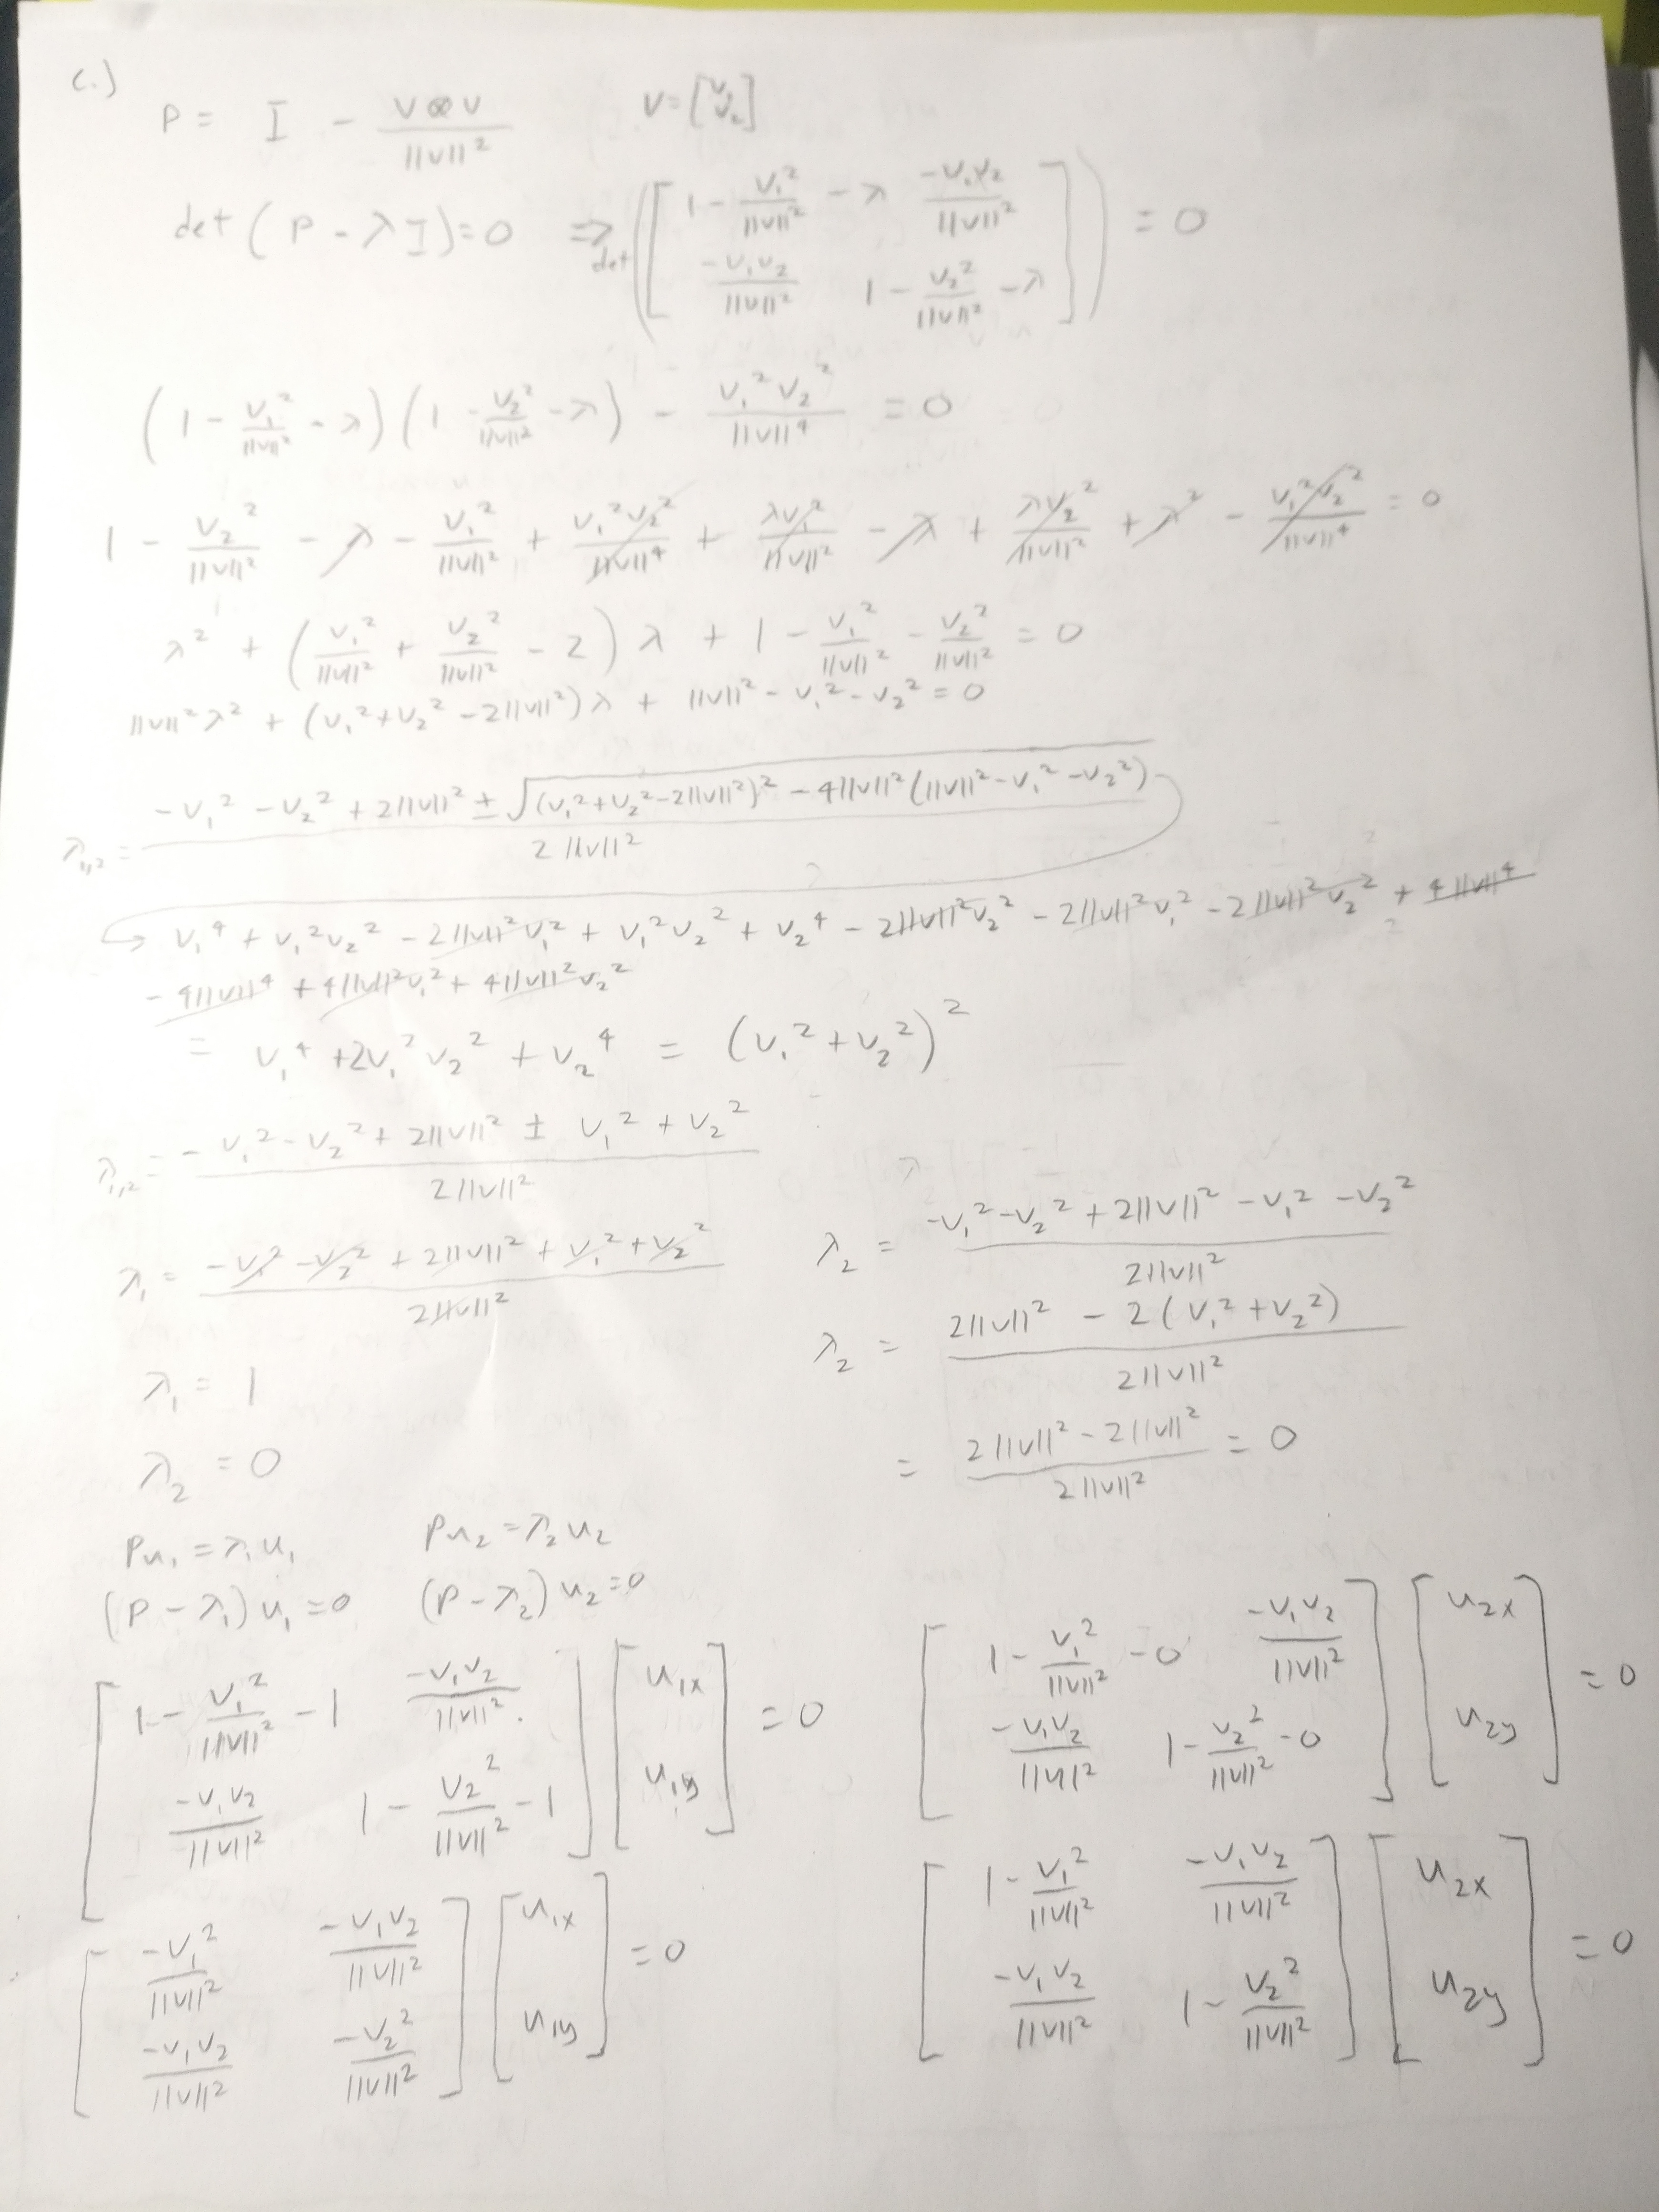 c.)
P = I - (v ⊗ v)/||v||²    v = [v₁; v₂]
det(P - λI) = 0 ⇒ det([1 - v₁²/||v||² - λ, -v₁v₂/||v||²; -v₁v₂/||v||², 1 - v₂²/||v||² - λ]) = 0
(1 - v₁²/||v||² - λ)(1 - v₂²/||v||² - λ) - v₁²v₂²/||v||⁴ = 0
1 - v₂²/||v||² - λ - v₁²/||v||² + v₁²v₂²/||v||⁴ + λv₁²/||v||² - λ + λv₂²/||v||² + λ² - v₁²v₂²/||v||⁴ = 0
λ² + (v₁²/||v||² + v₂²/||v||² - 2)λ + 1 - v₁²/||v||² - v₂²/||v||² = 0
||v||²λ² + (v₁² + v₂² - 2||v||²)λ + ||v||² - v₁² - v₂² = 0
λ₁,₂ = (-v₁² - v₂² + 2||v||² ± √((v₁² + v₂² - 2||v||²)² - 4||v||²(||v||² - v₁² - v₂²)))/(2||v||²)
↳ v₁⁴ + v₁²v₂² - 2||v||²v₁² + v₁²v₂² + v₂⁴ - 2||v||²v₂² - 2||v||²v₁² - 2||v||²v₂² + 4||v||⁴
- 4||v||⁴ + 4||v||²v₁² + 4||v||²v₂²
= v₁⁴ + 2v₁²v₂² + v₂⁴ = (v₁² + v₂²)²
λ₁,₂ = (-v₁² - v₂² + 2||v||² ± v₁² + v₂²)/(2||v||²)
λ₁ = (-v₁² - v₂² + 2||v||² + v₁² + v₂²)/(2||v||²)
λ₁ = 1
λ₂ = 0
λ₂ = (-v₁² - v₂² + 2||v||² - v₁² - v₂²)/(2||v||²)
λ₂ = (2||v||² - 2(v₁² + v₂²))/(2||v||²)
= (2||v||² - 2||v||²)/(2||v||²) = 0
Pu₁ = λ₁u₁    Pu₂ = λ₂u₂
(P - λ₁)u₁ = 0    (P - λ₂)u₂ = 0
[1 - v₁²/||v||² - 1, -v₁v₂/||v||²; -v₁v₂/||v||², 1 - v₂²/||v||² - 1][u₁ₓ; u₁y] = 0
[-v₁²/||v||², -v₁v₂/||v||²; -v₁v₂/||v||², -v₂²/||v||²][u₁ₓ; u₁y] = 0
[1 - v₁²/||v||² - 0, -v₁v₂/||v||²; -v₁v₂/||v||², 1 - v₂²/||v||² - 0][u₂ₓ; u₂y] = 0
[1 - v₁²/||v||², -v₁v₂/||v||²; -v₁v₂/||v||², 1 - v₂²/||v||²][u₂ₓ; u₂y] = 0